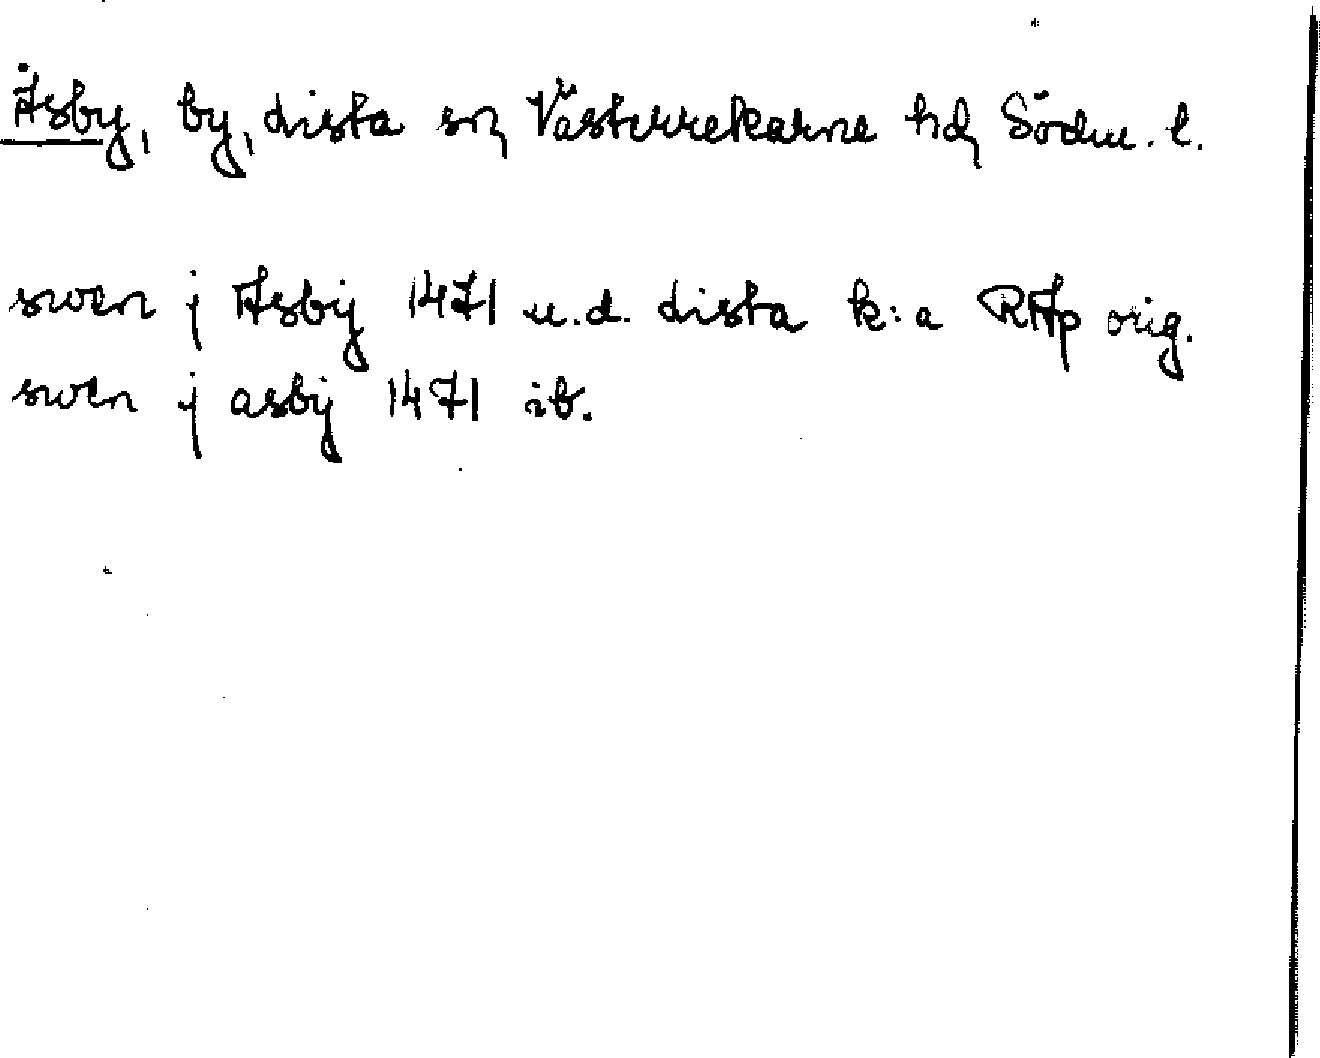 Åsby, by, Lista sn, Västerrekarne hd, Södm. l.
swen j Asbÿ 1471 u.d. Lista k:a RAp orig.
swen j asbÿ 1471 ib.